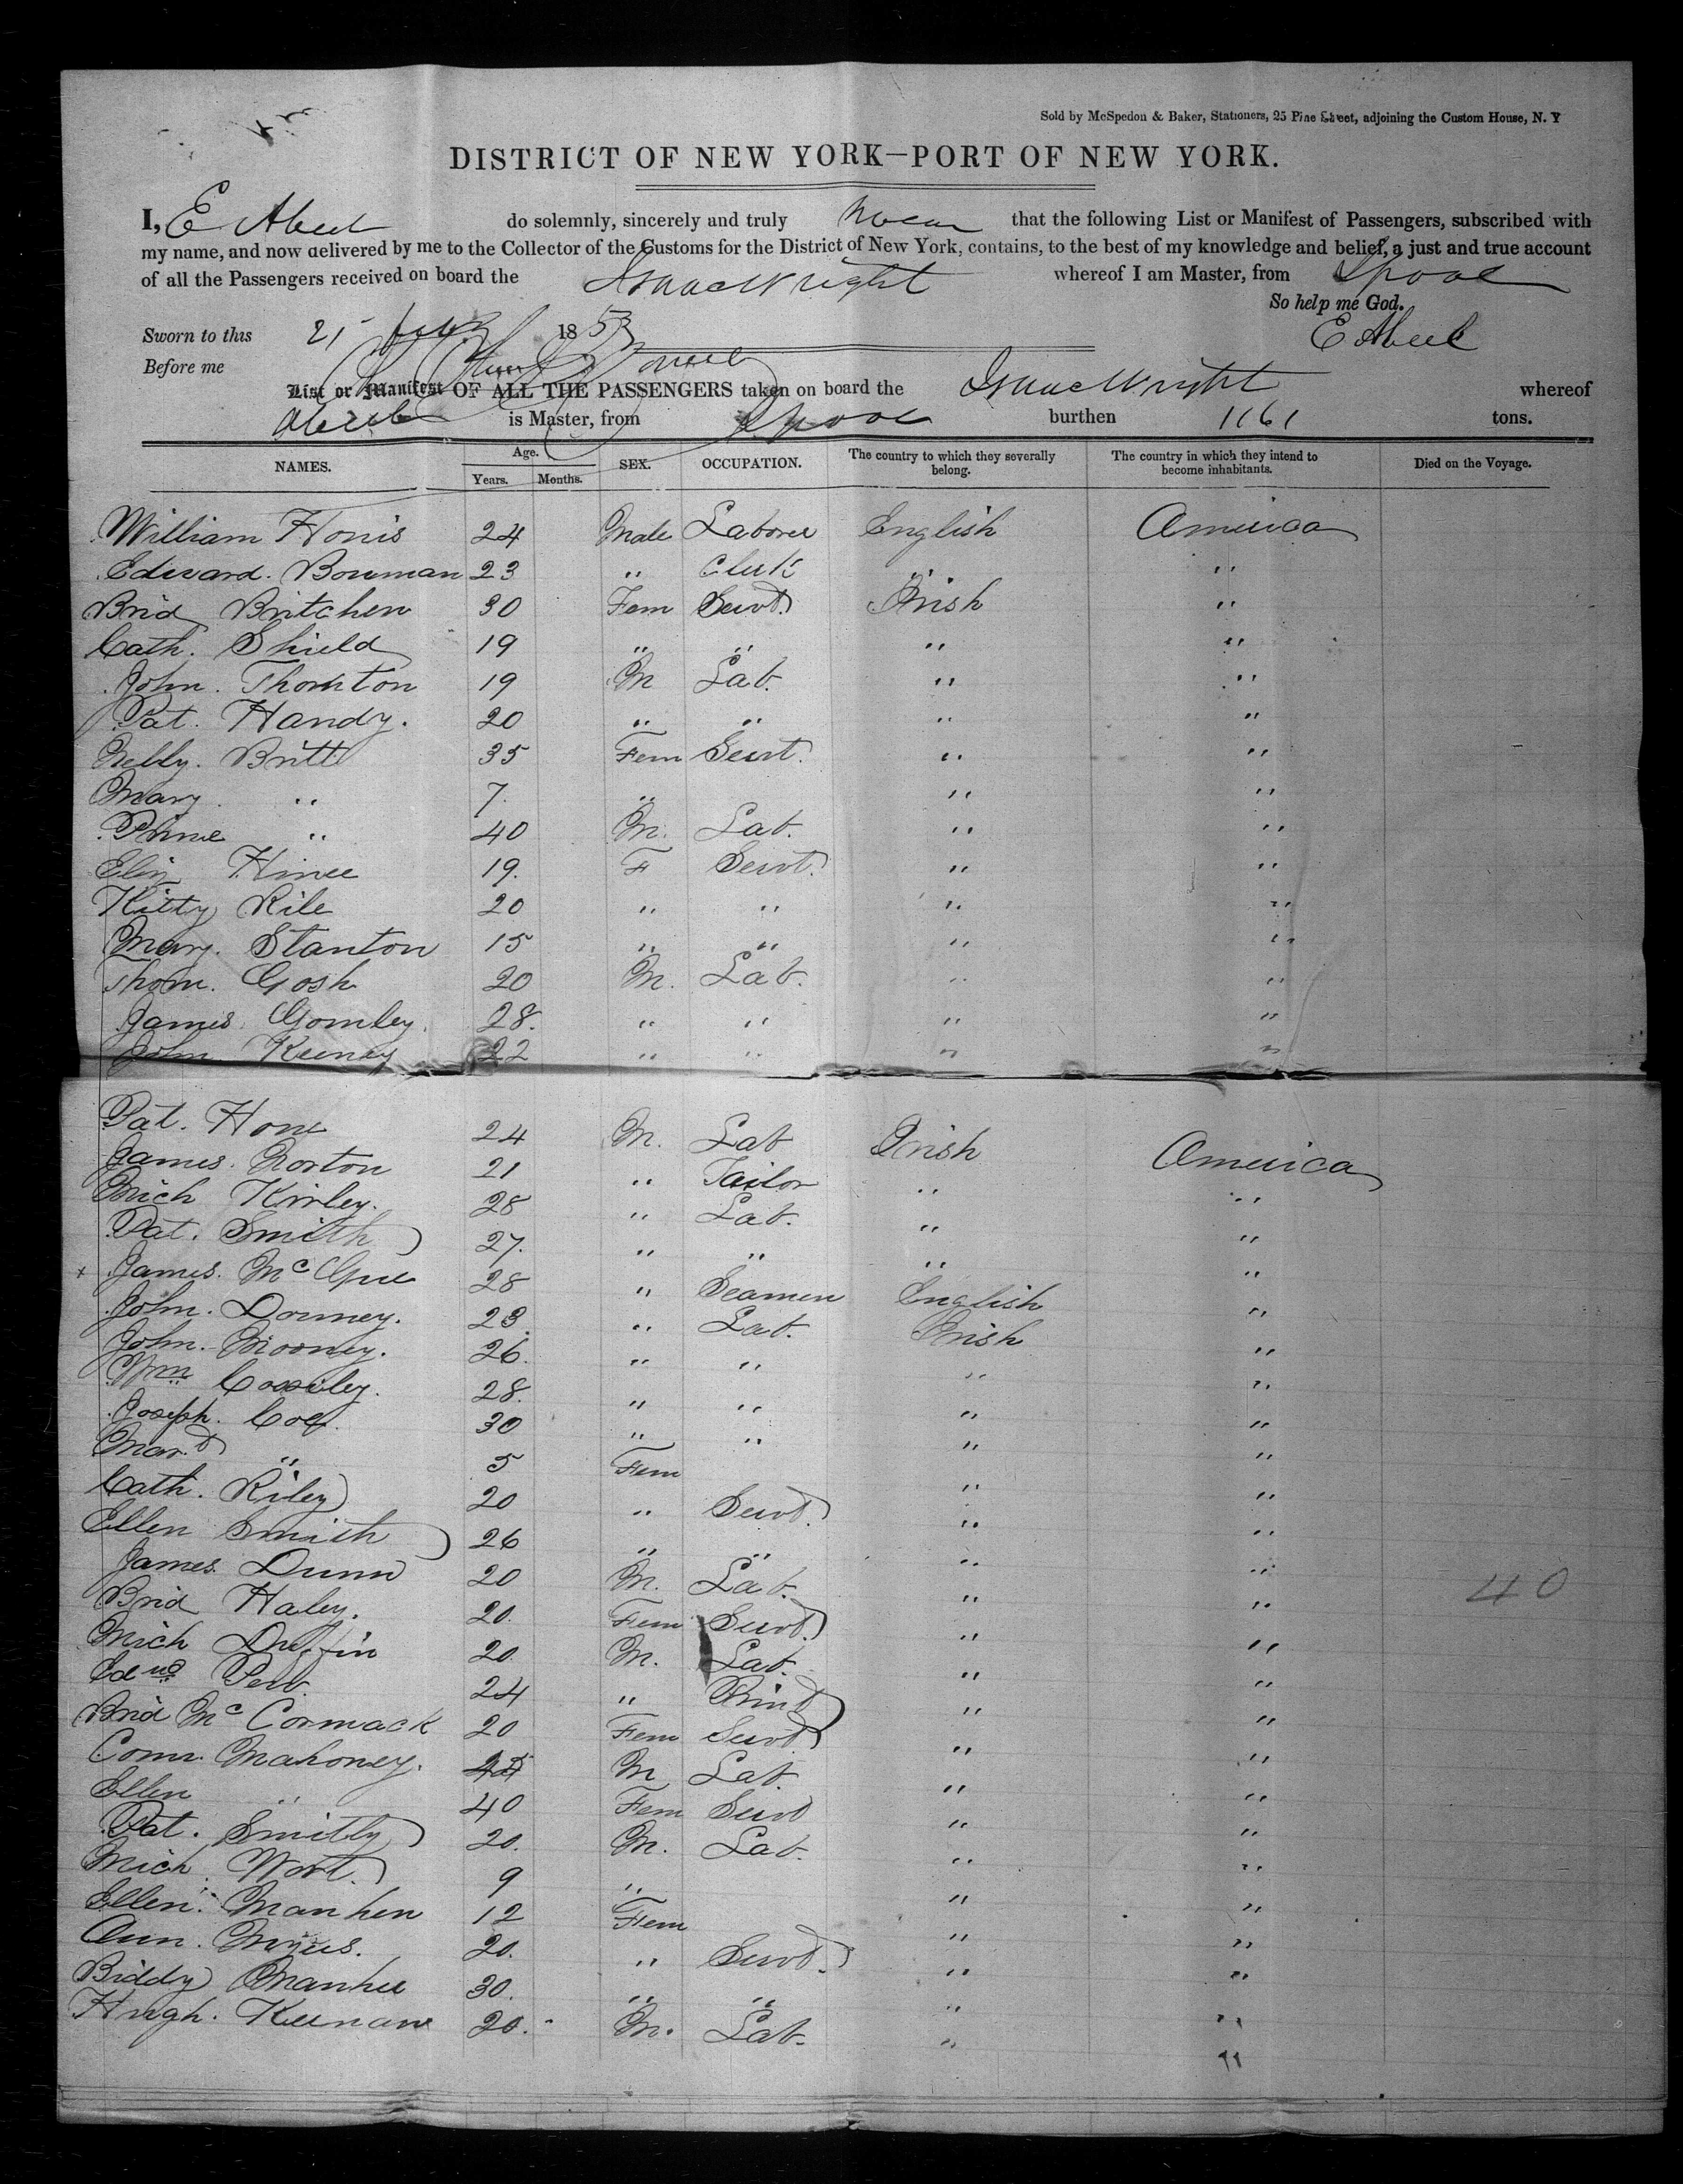 Sold by McSpedon & Baker, Stationers, 25 Pine Street, adjoining the Custom House, N. Y
DISTRICT OF NEW YORK—PORT OF NEW YORK.
I, E Abeel do solemnly, sincerely and truly swear that the following List or Manifest of Passengers, subscribed with
my name, and now delivered by me to the Collector of the Customs for the District of New York, contains, to the best of my knowledge and belief, a just and true account
of all the Passengers received on board the Isaac Wright whereof I am Master, from Lpool
So help me God.
Sworn to this 21 1853 E Abeel
Before me
List or Manifest OF ALL THE PASSENGERS taken on board the Isaac Wright whereof
Abeel is Master, from Lpool burthen 1161 tons.
NAMES. Age. Years. Months. SEX. OCCUPATION. The country to which they severally belong. The country in which they intend to become inhabitants. Died on the Voyage.
William Horris 24 Male Laborer English America
Edward. Bowman 23 " Clerk " "
Brid Britchen 30 Fem Servt. Irish "
Cath. Shield 19 " " " "
John. Thornton 19 M Lab. " "
Pat. Handy. 20 " " " "
Nelly. Britt 35 Fem Servt. " "
Mary " 7. " " "
" 40 M. Lab. " "
Eliz 19. F Servt. " "
Kitty Rile 20 " " " "
Mary. Stanton 15 " " " "
Thom. Gosh 20 M. Lab. " "
James Gomley. 28. " " " "
John Keeney 22 " " " "
Pat. Hone 24 M. Lab Irish America
James. Norton 21 " Tailor " "
Mich Kirley. 28 " Lab. " "
Pat. Smith 27. " " " "
x James. McGue 28 " Seamen English "
John. Downey. 23. " Lab. Irish "
John. Mooney. 26. " " " "
Wm Cossiley. 28. " " " "
Joseph. Cox. 30 " " " "
Mart " 5 Fem " "
Cath. Riley 20 " Servt. " "
Ellen Smith 26 " " " "
James. Dunn 20 M. Lab. " " 40
Brid Haley. 20. Fem Servt. " "
Mich Duffin 20 M. Lab. " "
Edwd 24 " " "
Brid McCormack 20 Fem Servt " "
Mahoney. M Lab. " "
Ellen " 40 Fem Servt " "
Pat. Smith 20. M. Lab. " "
Mich. Wort. 9 " " "
Ellen. Manhen 12 Fem " "
Ann. 20. " Servt. " "
Biddy Manhee 30. " " " "
Hugh. Keenan 20. M. Lab. " "
"